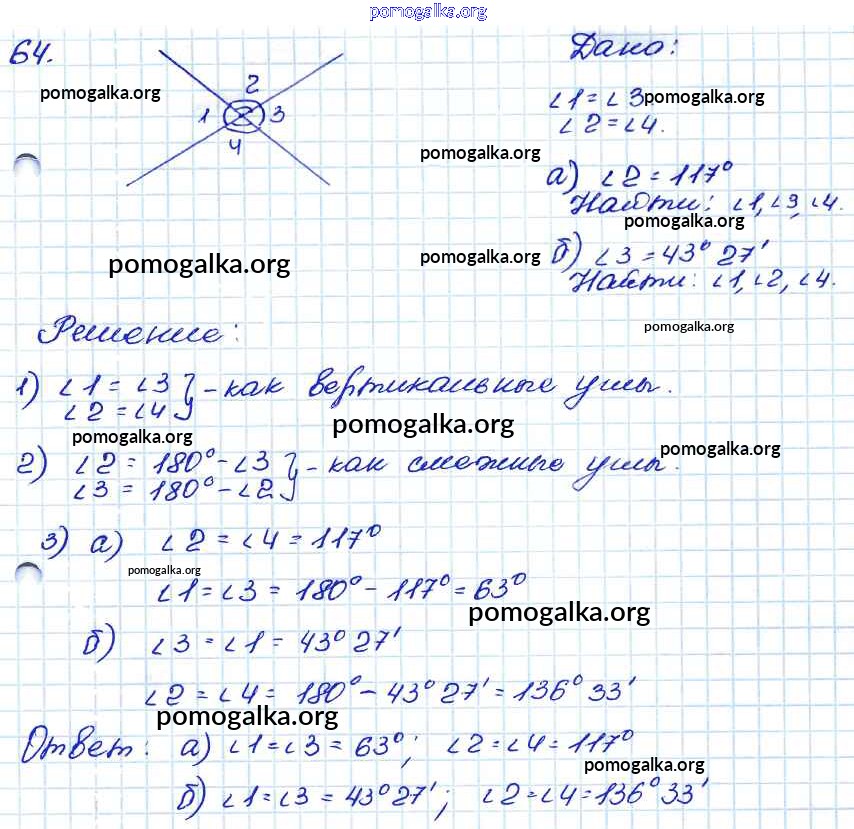 pomogalka.org
64.
Дано:
2
pomogalka.org
1
3
4
∠1 = ∠3
pomogalka.org
∠2 = ∠4.
pomogalka.org
а) ∠2 = 117°
Найти: ∠1, ∠3, ∠4.
pomogalka.org
б) ∠3 = 43° 27'
pomogalka.org
pomogalka.org
Найти: ∠1, ∠2, ∠4.
pomogalka.org
Решение:
1) ∠1 = ∠3 } - как вертикальные углы.
∠2 = ∠4
pomogalka.org
pomogalka.org
pomogalka.org
2) ∠2 = 180° - ∠3 } - как смежные углы.
∠3 = 180° - ∠2
3) а) ∠2 = ∠4 = 117°
pomogalka.org
∠1 = ∠3 = 180° - 117° = 63°
pomogalka.org
б) ∠3 = ∠1 = 43° 27'
∠2 = ∠4 = 180° - 43° 27' = 136° 33'
pomogalka.org
Ответ: а) ∠1 = ∠3 = 63°; ∠2 = ∠4 = 117°
pomogalka.org
б) ∠1 = ∠3 = 43° 27'; ∠2 = ∠4 = 136° 33'